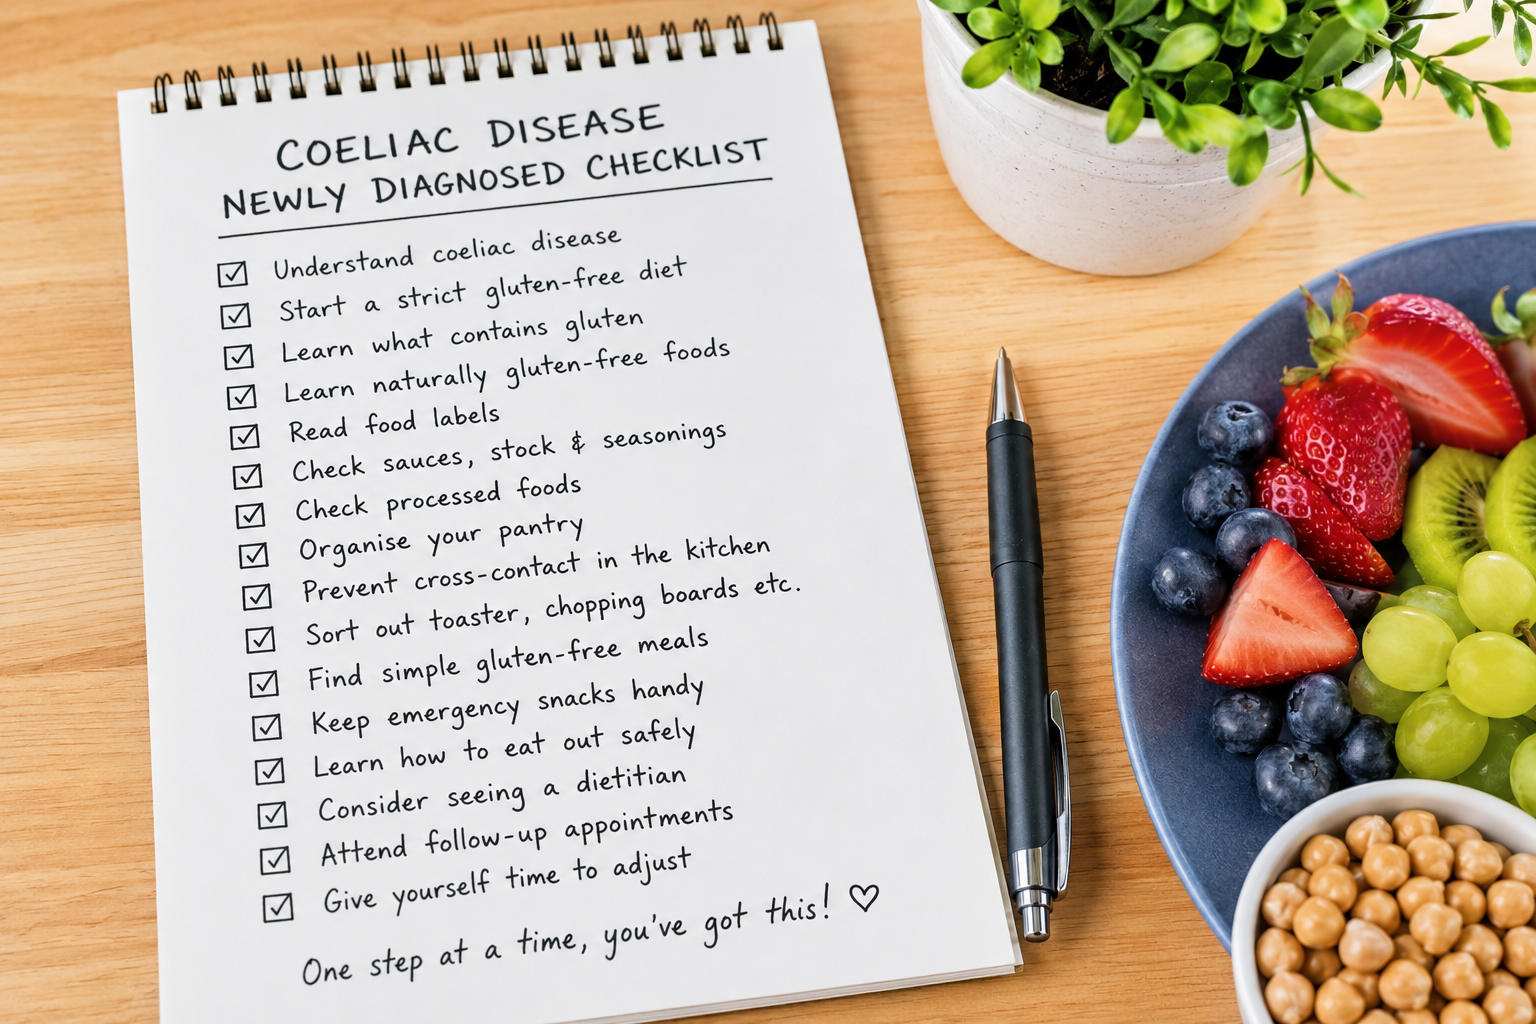 COELIAC DISEASE
NEWLY DIAGNOSED CHECKLIST
Understand coeliac disease
Start a strict gluten-free diet
Learn what contains gluten
Learn naturally gluten-free foods
Read food labels
Check sauces, stock & seasonings
Check processed foods
Organise your pantry
Prevent cross-contact in the kitchen
Sort out toaster, chopping boards etc.
Find simple gluten-free meals
Keep emergency snacks handy
Learn how to eat out safely
Consider seeing a dietitian
Attend follow-up appointments
Give yourself time to adjust
One step at a time, you've got this! ♡